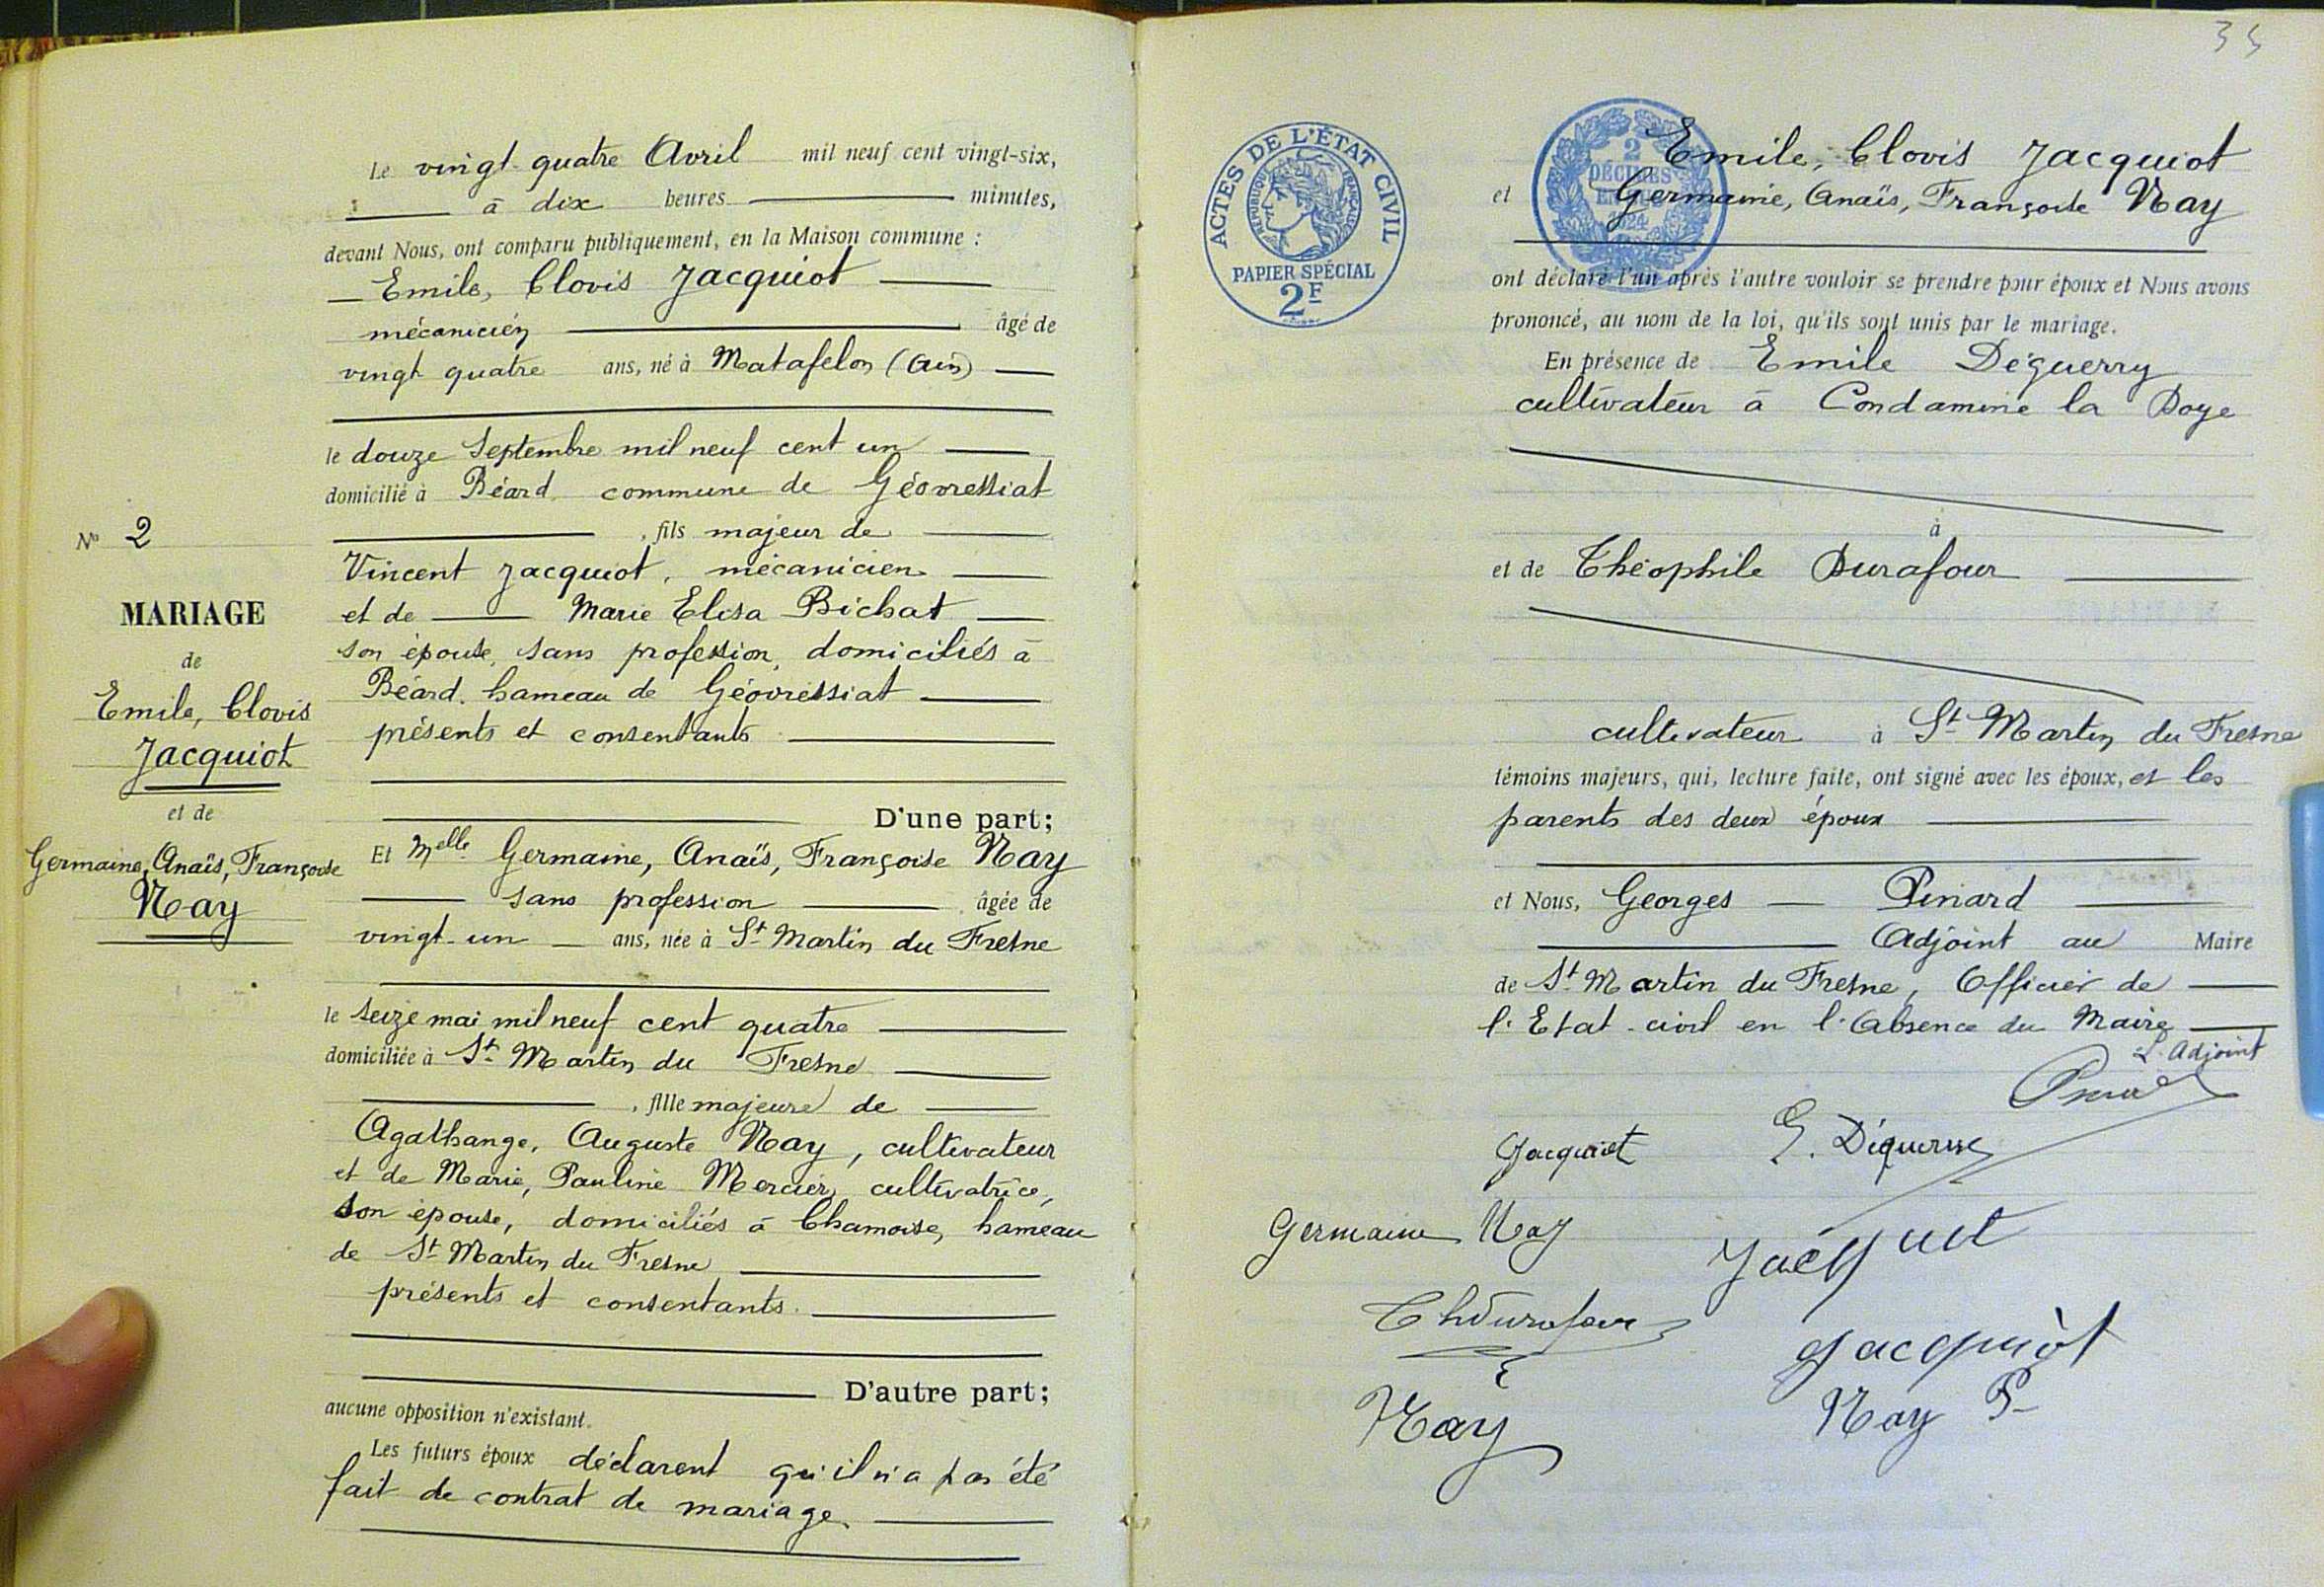 Le vingt-quatre Avril mil neuf cent vingt-six,
à dix heures minutes,
devant Nous, ont comparu publiquement, en la Maison commune :
Emile, Clovis Jacquiot
mécanicien âgé de
vingt quatre ans, né à Matafelon (Ain)
le douze Septembre mil neuf cent un
domicilié à Béard commune de Géovressiat
, fils majeur de
Vincent Jacquiot, mécanicien
et de Marie Elisa Bichat
son épouse, sans profession, domiciliés à
Béard. hameau de Géovressiat
présents et consentants
D'une part;
No 2
MARIAGE
de
Emile, Clovis
Jacquiot
et de
Germaine, Anaïs, Françoise
Nay
Et Melle Germaine, Anaïs, Françoise Nay
sans profession âgée de
vingt-un ans, née à St Martin du Fresne
le seize mai mil neuf cent quatre
domiciliée à St Martin du Fresne
, fille majeure de
Agathange, Auguste Nay, cultivateur
et de Marie, Pauline Mercier, cultivatrice,
son épouse, domiciliés à Chamoise, hameau
de St Martin du Fresne
présents et consentants.
D'autre part;
aucune opposition n'existant.
Les futurs époux déclarent qu'il n'a pas été
fait de contrat de mariage.
35
ACTES DE L'ÉTAT CIVIL
RÉPUBLIQUE FRANÇAISE
PAPIER SPÉCIAL
2F
2
DÉCIMES
Emile, Clovis Jacquiot
et Germaine, Anaïs, Françoise Nay
ont déclaré l'un après l'autre vouloir se prendre pour époux et Nous avons
prononcé, au nom de la loi, qu'ils sont unis par le mariage.
En présence de Emile Déguerry
cultivateur à Condamine la Doye
à
et de Théophile Durafour
cultivateur à St Martin du Fresne
témoins majeurs, qui, lecture faite, ont signé avec les époux, et les
parents des deux époux
et Nous, Georges Pinard
Adjoint au Maire
de St Martin du Fresne, Officier de
l'Etat-civil en l'Absence du Maire
L'Adjoint
Jacquiot
Germaine Nay
Jacquiot
Nay
Nay P